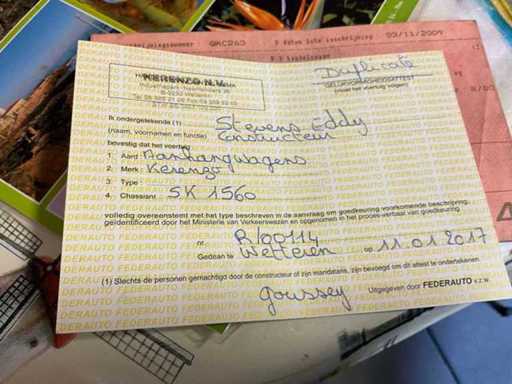 QMC263
03/11/2009
KERENZO N.V.
Duplicata
GELIJKVORMIGHEIDSATTEST
(moet het voertuig volgen)
Ik ondergetekende (1) Stevens Eddy
(naam, voornamen en functie) Constructeur
bevestig dat het voertuig
1. Aard : Aanhangwagens
2. Merk : Kerenzo
3. Type :
4. Chassisnr. : SK 1560
volledig overeenstemt met het type beschreven in de aanvraag om goedkeuring voorkomende beschrijving,
geïdentificeerd door het Ministerie van Verkeerswezen en opgenomen in het proces-verbaal van goedkeuring
nr. R/00114
Gedaan te Wetteren op 11.01.2017
(1) Slechts de personen gemachtigd door de constructeur of zijn mandataris, zijn bevoegd om dit attest te ondertekenen.
goussey
Uitgegeven door FEDERAUTO v.z.w.